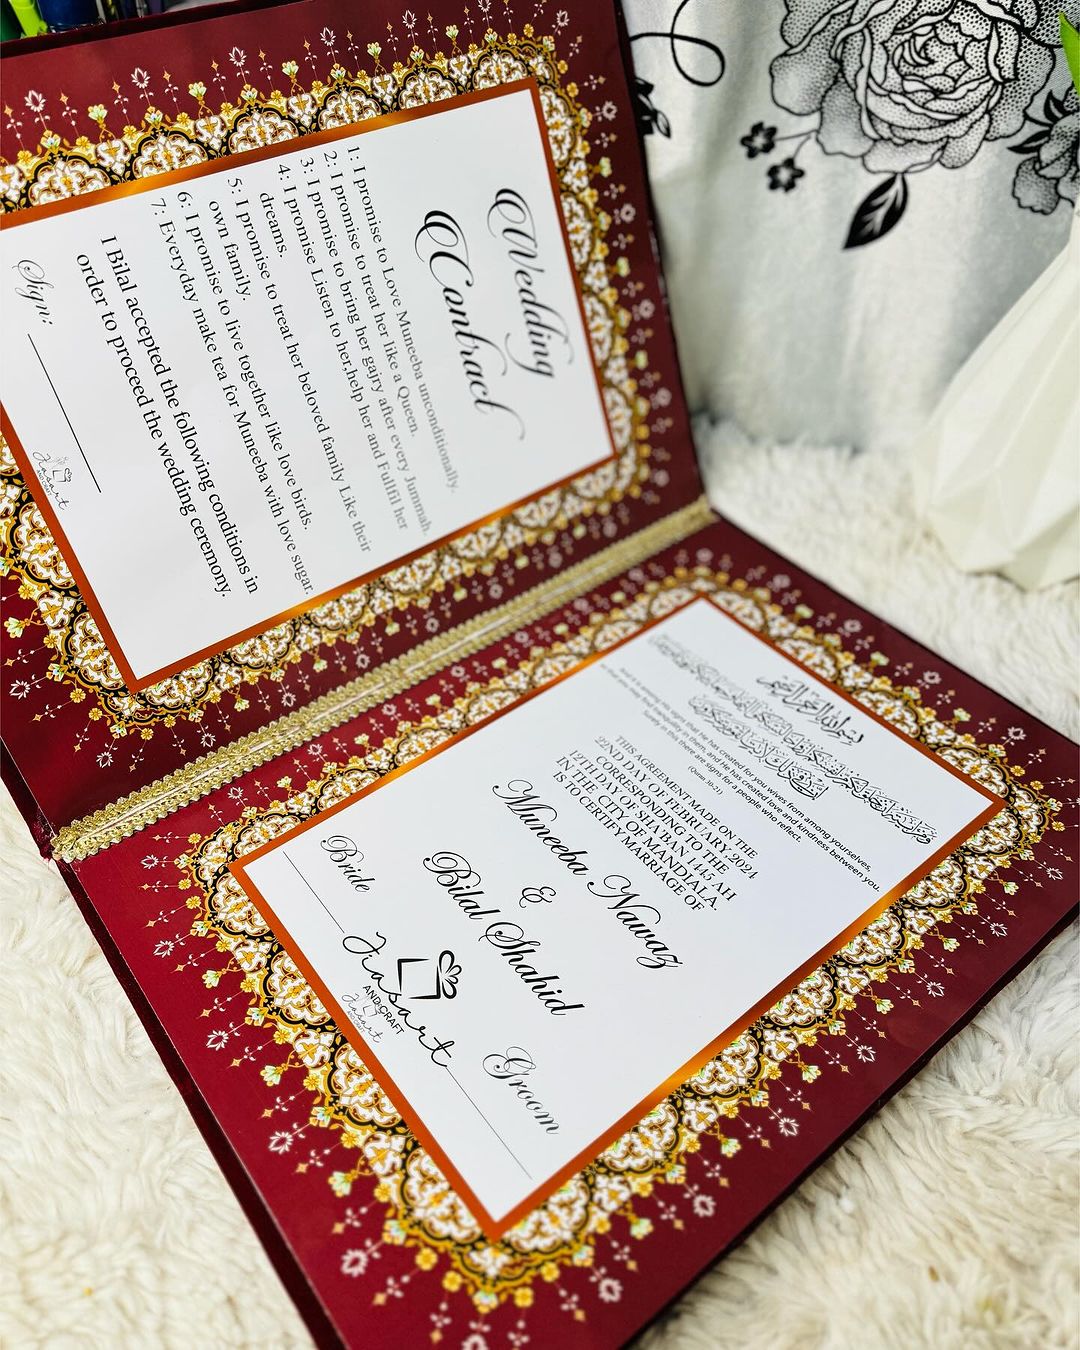 Wedding
Contract
1: I promise to Love Muneeba unconditionally.
2: I promise to treat her like a Queen.
3: I promise to bring her gajry after every Jummah.
4: I promise Listen to her,help her and Fullfil her
dreams.
5: I promise to treat her beloved family Like their
own family.
6: I promise to live together like love birds.
7: Everyday make tea for Muneeba with love sugar.
I Bilal accepted the following conditions in
order to proceed the wedding ceremony.
Sign:
Jiasart
AND CRAFT
بسم الله الرحمن الرحيم
And it is among His signs that He has created for you wives from among yourselves,
that you may find tranquility in them, and He has created love and kindness between you.
Surely in this there are signs for a people who reflect.
THIS AGREEMENT MADE ON THE
22ND DAY OF FEBRUARY 2024
CORRESPONDING TO THE
12TH DAY OF SHA'BAN 1445 AH
IN THE CITY OF MANDIALA.
IS TO CERTIFY MARRIAGE OF
Muneeba Nawaz
&
Bilal Shahid
Bride
Groom
Jiasart
AND CRAFT
Jiasart